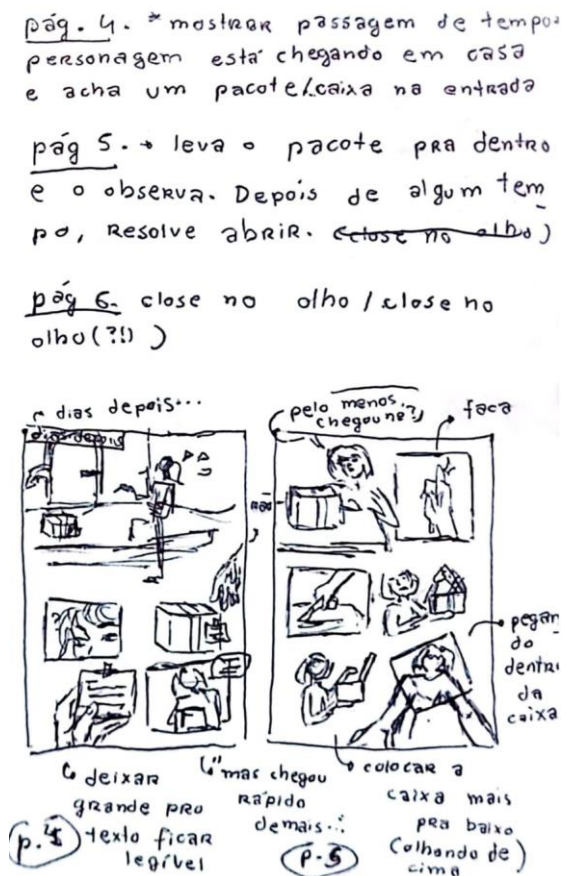 pág. 4. * mostrar passagem de tempo:
personagem está chegando em casa
e acha um pacote/caixa na entrada
pág 5. → leva o pacote pra dentro
e o observa. Depois de algum tem
po, resolve abrir. (close no olho)
pág 6. close no olho / close no
olho (?!) )
dias depois...
dias depois
pelo menos,
chegou né?
faca
mão
pegan
do
dentro
da
caixa
deixar
grande pro
texto ficar
legível
"mas chegou
rápido
demais...
colocar a
caixa mais
pra baixo
(olhando de)
cima
p. 4
p. 5